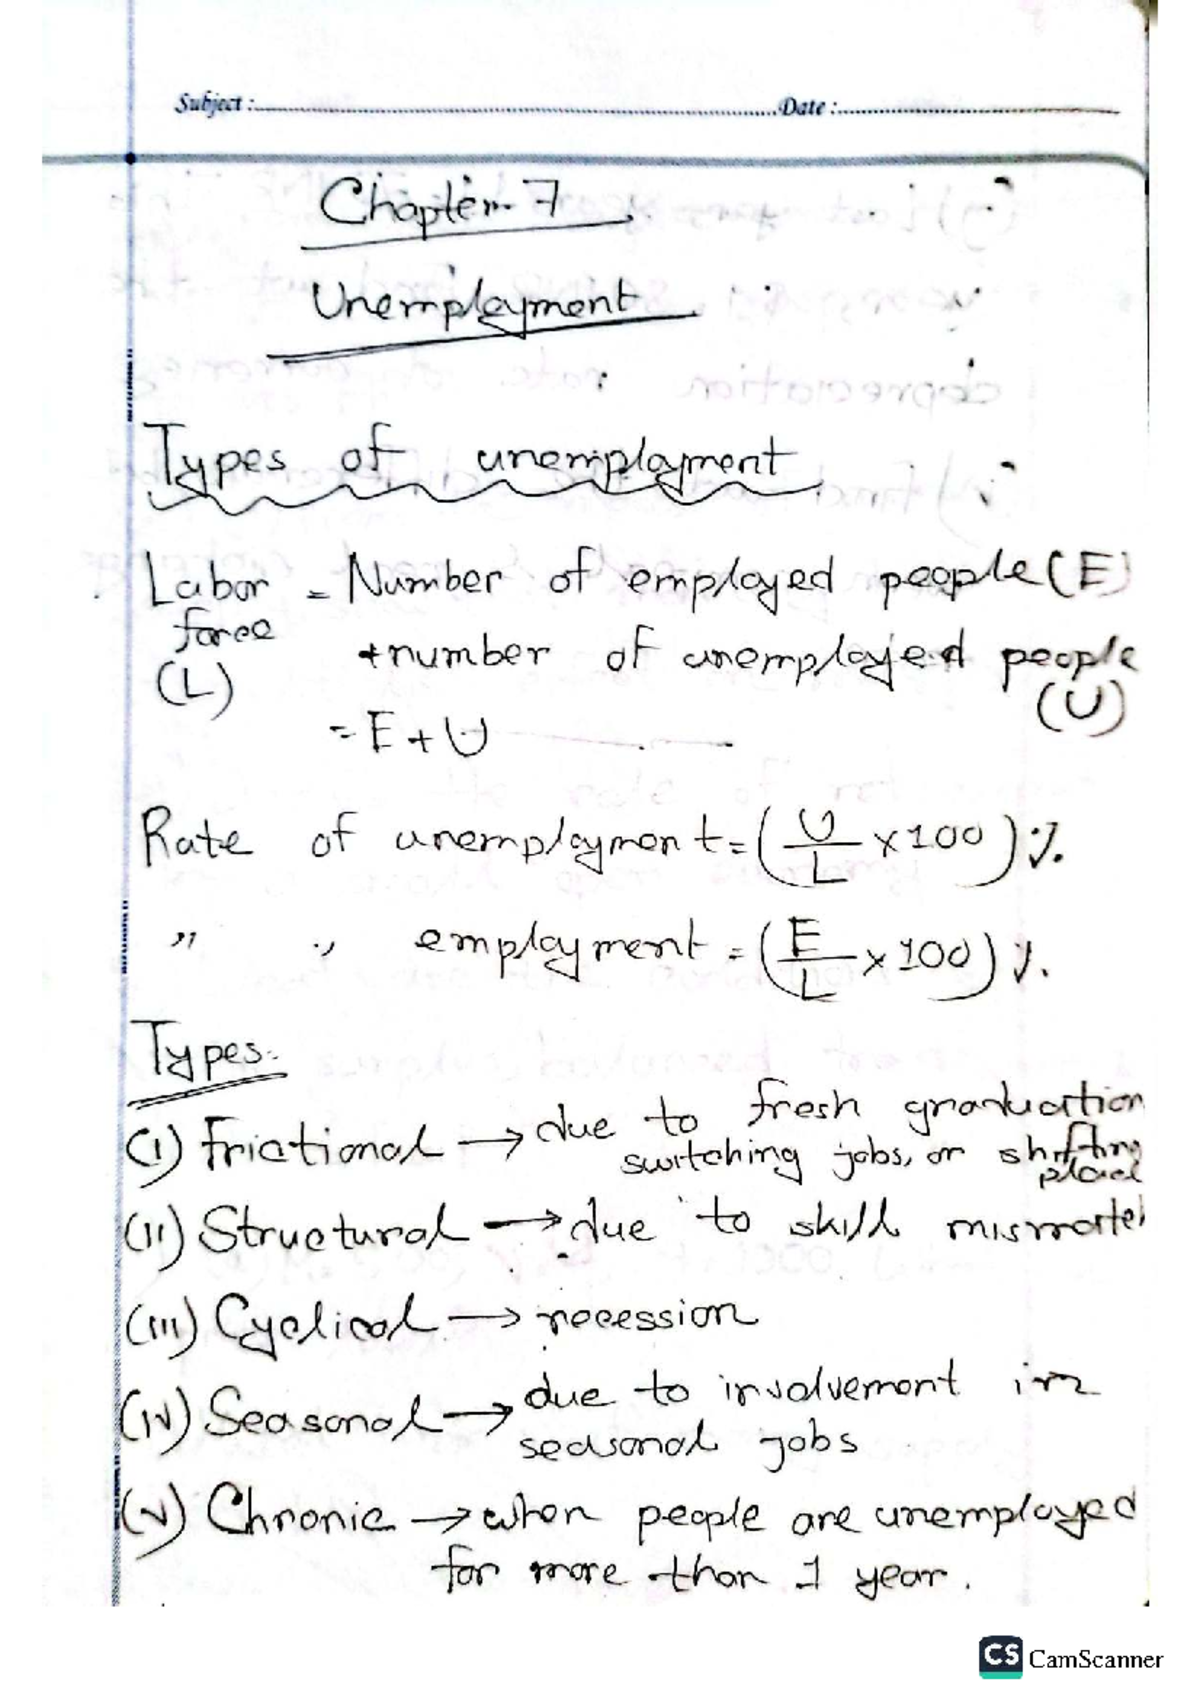 Subject : Date :
Chapter-7
Unemployment
Types of unemployment
Labor = Number of employed people (E)
force + number of unemployed people
(L) (U)
= E + U
Rate of unemployment = (U/L × 100) %.
" " employment = (E/L × 100) %.
Types:
(i) Frictional → due to fresh graduation
switching jobs, or shifting
place
(ii) Structural → due to skill mismatch
(iii) Cyclical → recession
(iv) Seasonal → due to involvement in
seasonal jobs
(v) Chronic → when people are unemployed
for more than 1 year.
CS CamScanner